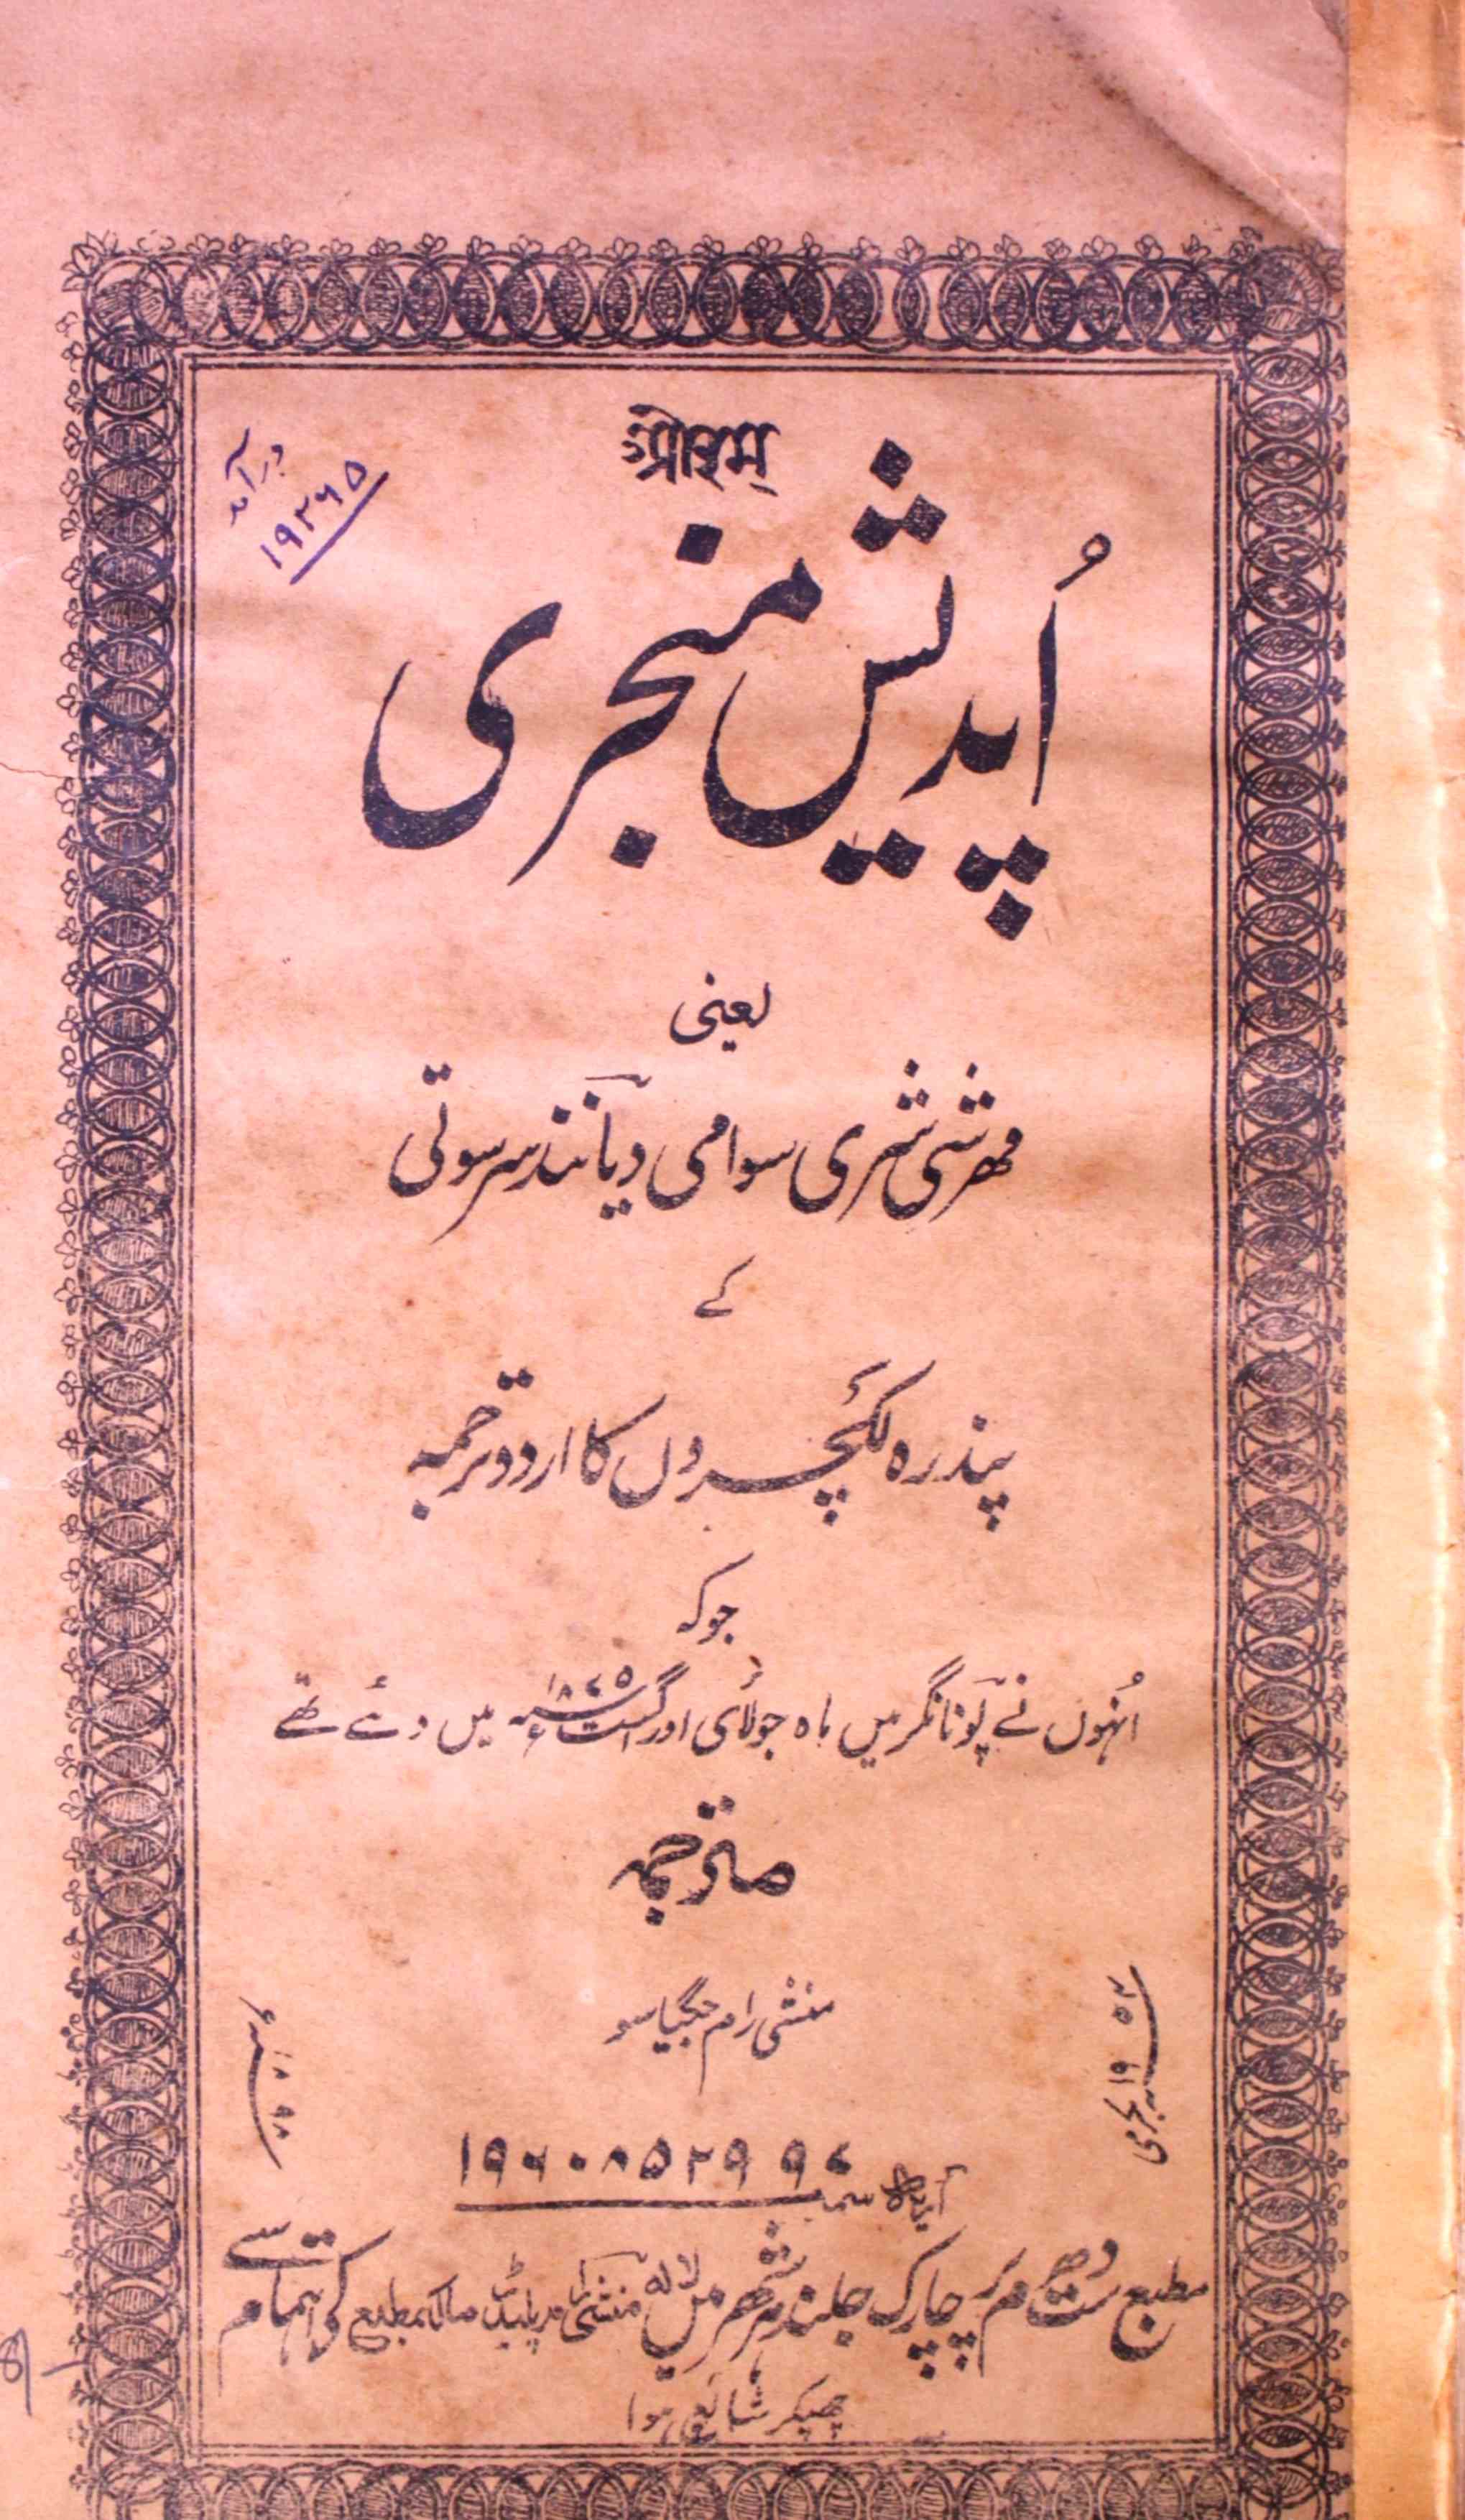 ओ३म्
درآمد
۱۹۲۶۵
اُپدیش منجری
یعنی
مہرشی شری سوامی دیانند سرسوتی
کے
پندرہ لکچروں کا اردو ترجمہ
جو کہ
اُنہوں نے پونا نگر میں ماہ جولائی اور اگست ۱۸۷۵ء میں دئے تھے
مترجمہ
منشی رام جگیاسو
بکرمی
آریہ سمبت ۱۹۶۰۸۵۲۹۹۷
مطبع ست دھرم پرچارک جلندھر شہر میں لالہ منشی رام پلیڈر مالک مطبع کے اہتمام سے
چھپکر شائع ہوا